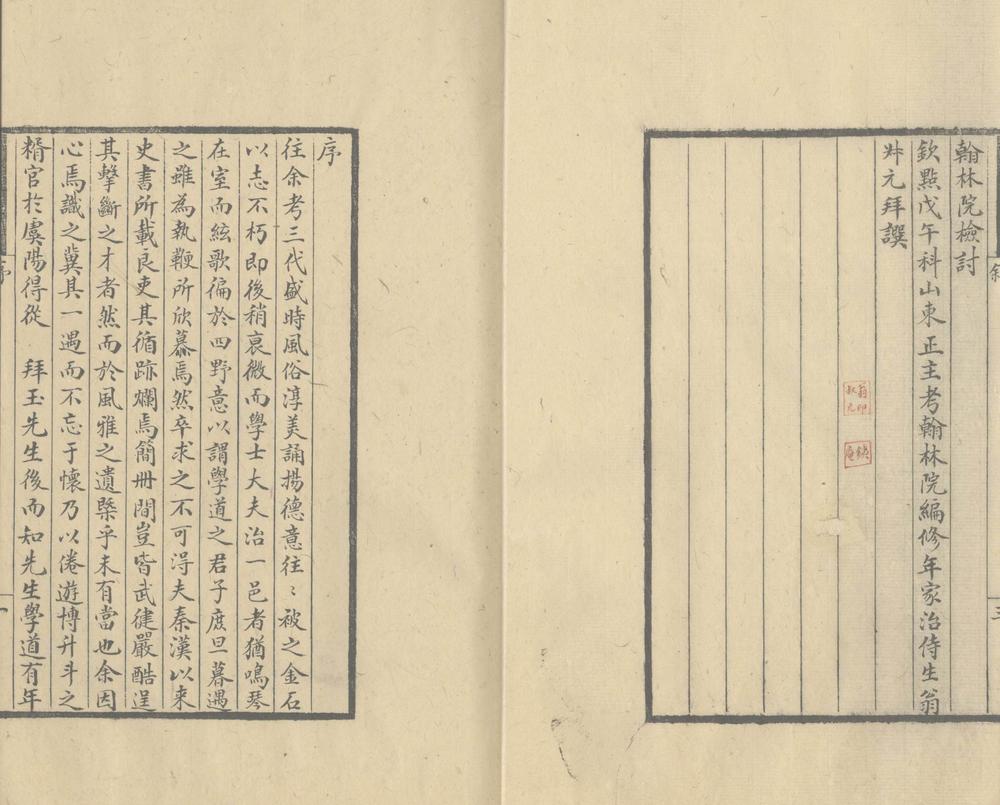 翰林院檢討
欽點戊午科山東正主考翰林院編修年家治侍生翁
叔元拜譔
翁印叔元
序
往余考三代盛時風俗淳美誦揚德意往〻被之金石
以志不朽即後稍衰微而學士大夫治一邑者猶鳴琴
在室而絃歌徧於四野意以謂學道之君子庶旦暮遇
之雖為執鞭所欣慕焉然卒求之不可淂夫秦漢以来
史書所載良吏其循跡爛焉簡冊間豈皆武健嚴酷逞
其擊斷之才者然而於風雅之遺槩乎未有當也余因
心焉識之冀其一遇而不忘于懷乃以倦遊博升斗之
糈官於虞陽得從 拜玉先生後而知先生學道有年
序